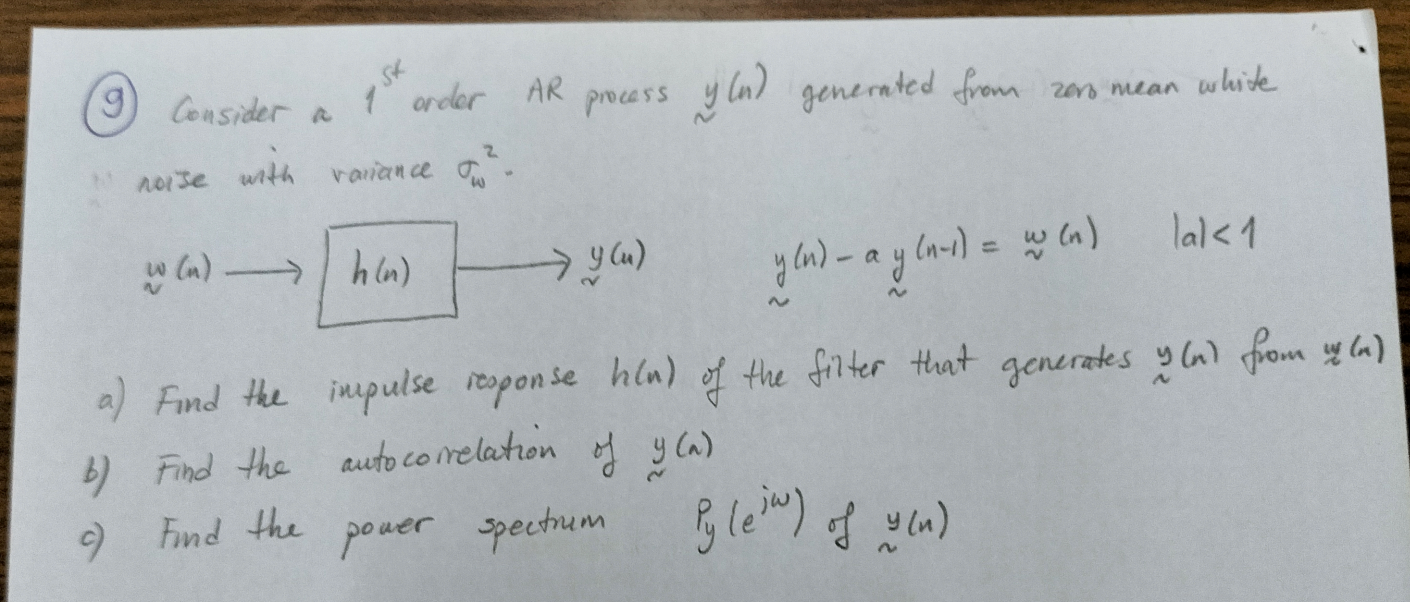 9 Consider a 1st order AR process y(n) generated from zero mean white
noise with variance σw².
w(n) → h(n) → y(n) y(n) - a y(n-1) = w(n) |a|<1
a) Find the impulse response h(n) of the filter that generates y(n) from w(n)
b) Find the autocorrelation of y(n)
c) Find the power spectrum Py(e^jω) of y(n)